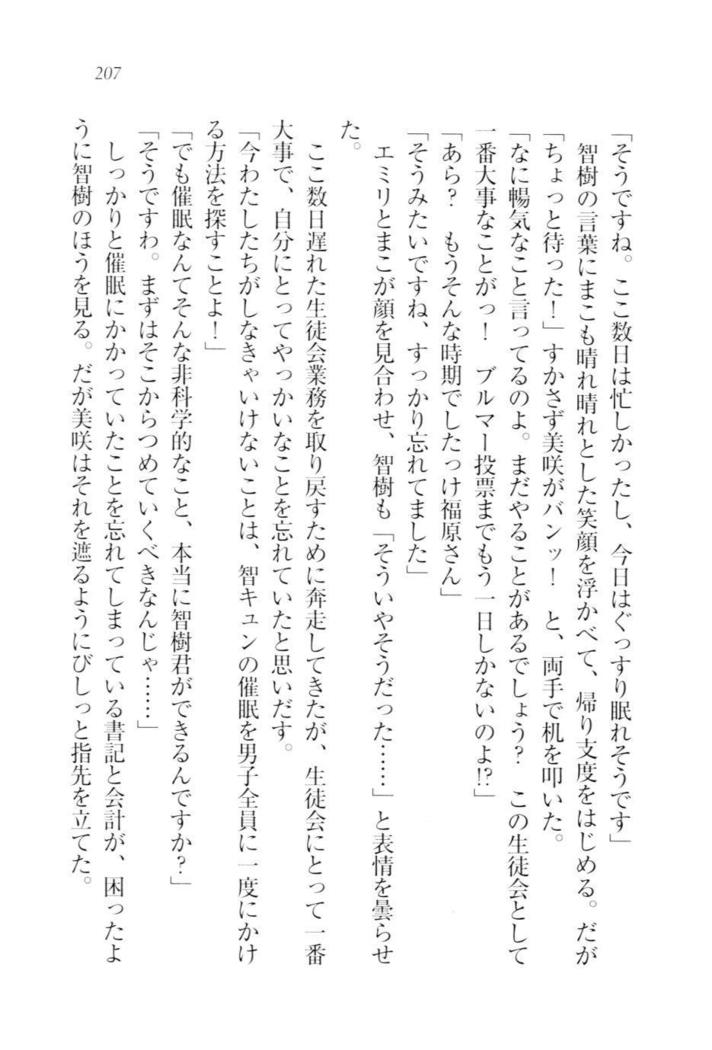 207
「そうですね。ここ数日は忙しかったし、今日はぐっすり眠れそうです」
　智樹の言葉にまこも晴れ晴れとした笑顔を浮かべて、帰り支度をはじめる。だが
「ちょっと待った！」すかさず美咲がバンッ！　と、両手で机を叩いた。
「なに暢気なこと言ってるのよ。まだやることがあるでしょう？　この生徒会として
一番大事なことがっ！　ブルマー投票までもう一日しかないのよ!?」
「あら？　もうそんな時期でしたっけ福原さん」
「そうみたいですね、すっかり忘れてました」
　エミリとまこが顔を見合わせ、智樹も「そういやそうだった……」と表情を曇らせ
た。
　ここ数日遅れた生徒会業務を取り戻すために奔走してきたが、生徒会にとって一番
大事で、自分にとってやっかいなことを忘れていたと思いだす。
「今わたしたちがしなきゃいけないことは、智キュンの催眠を男子全員に一度にかけ
る方法を探すことよ！」
「でも催眠なんてそんな非科学的なこと、本当に智樹君ができるんですか？」
「そうですわ。まずはそこからつめていくべきなんじゃ……」
　しっかりと催眠にかかっていたことを忘れてしまっている書記と会計が、困ったよ
うに智樹のほうを見る。だが美咲はそれを遮るようにびしっと指先を立てた。